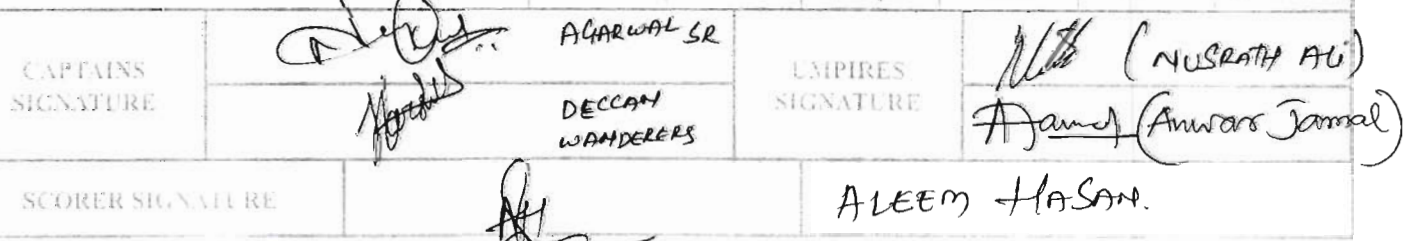 AGARWAL SR
CAPTAINS
SIGNATURE
DECCAN
WANDERERS
UMPIRES
SIGNATURE
(NUSRATH ALI)
(Anwar Jamal)
SCORER SIGNATURE
ALEEM HASAN.